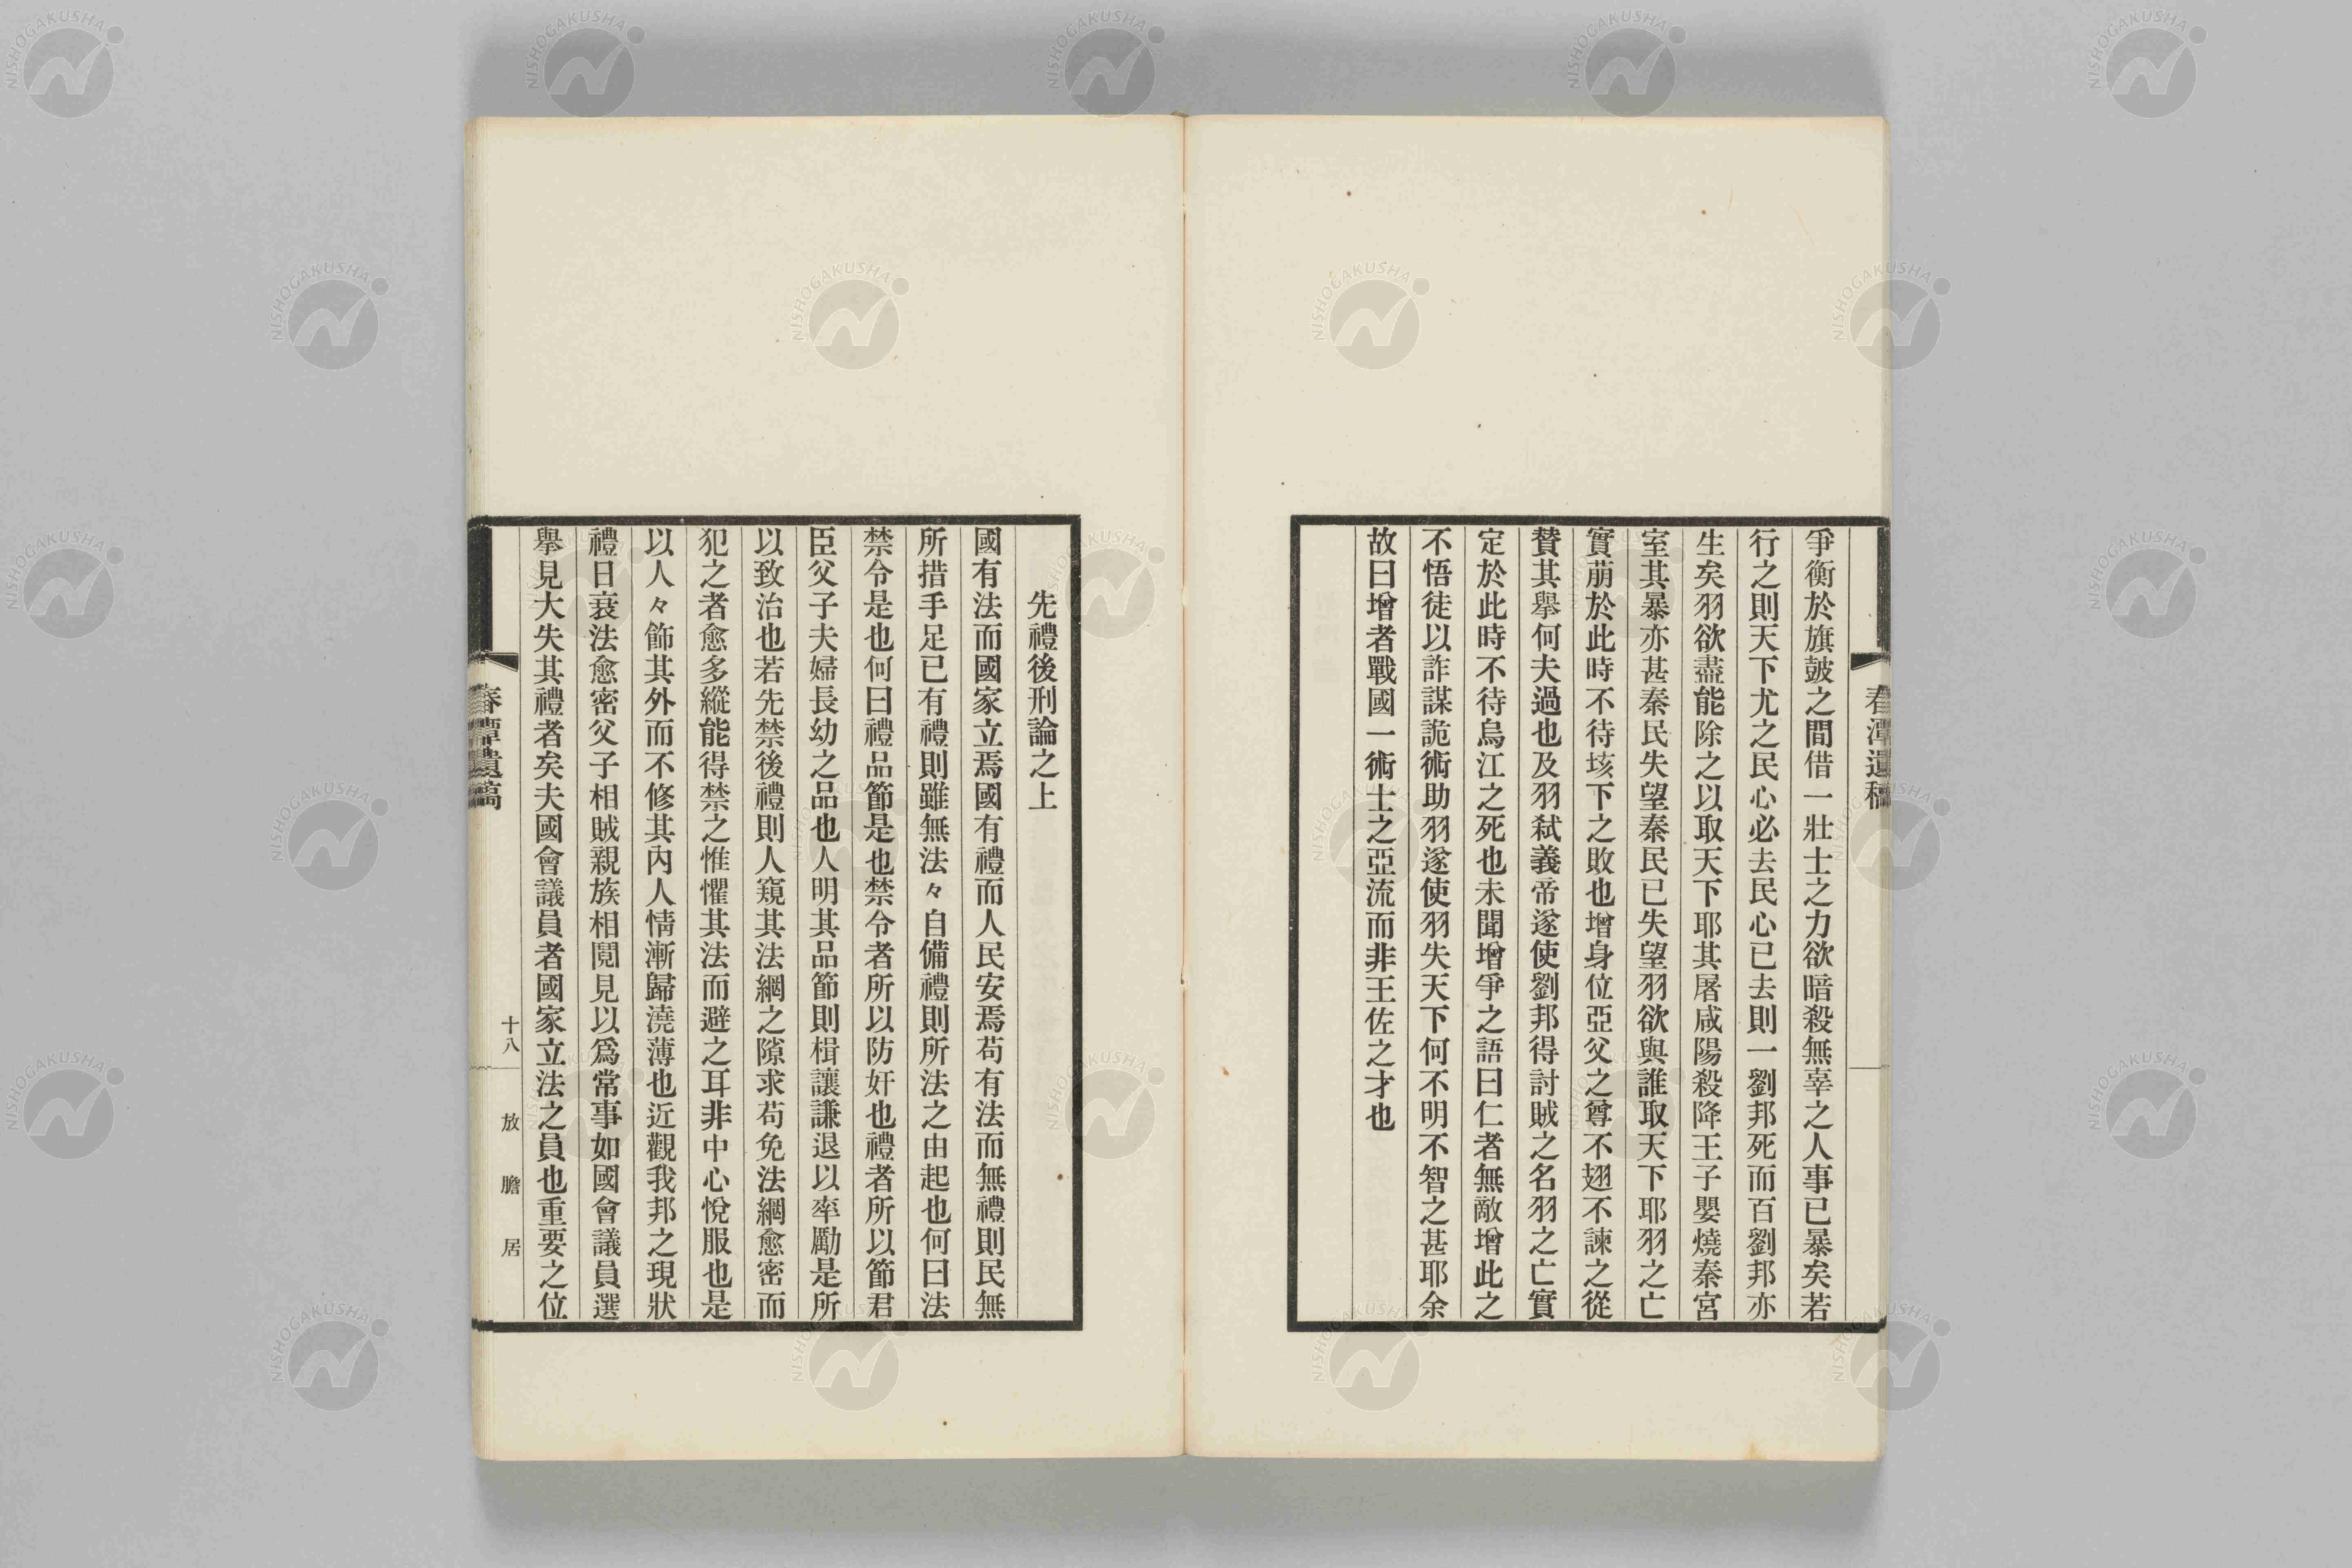 春潭遺稿
爭衡於旗皷之間借一壯士之力欲暗殺無辜之人事已暴矣若
行之則天下尤之民心必去民心已去則一劉邦死而百劉邦亦
生矣羽欲盡能除之以取天下耶其屠咸陽殺降王子嬰燒秦宮
室其暴亦甚秦民失望秦民已失望羽欲與誰取天下耶羽之亡
實萠於此時不待垓下之敗也增身位亞父之尊不翅不諫之從
賛其擧何夫過也及羽弑義帝遂使劉邦得討賊之名羽之亡實
定於此時不待烏江之死也未聞增爭之語曰仁者無敵增此之
不悟徒以詐謀詭術助羽遂使羽失天下何不明不智之甚耶余
故曰增者戰國一術士之亞流而非王佐之才也
先禮後刑論之上
國有法而國家立焉國有禮而人民安焉苟有法而無禮則民無
所措手足已有禮則雖無法々自備禮則所法之由起也何曰法
禁令是也何曰禮品節是也禁令者所以防奸也禮者所以節君
臣父子夫婦長幼之品也人明其品節則楫讓謙退以率勵是所
以致治也若先禁後禮則人窺其法網之隙求苟免法網愈密而
犯之者愈多縱能得禁之惟懼其法而避之耳非中心悅服也是
以人々飾其外而不修其內人情漸歸澆薄也近觀我邦之現狀
禮日衰法愈密父子相賊親族相鬩見以爲常事如國會議員選
擧見大失其禮者矣夫國會議員者國家立法之員也重要之位
春潭遺稿
十八
放膽居
NISHOGAKUSHA